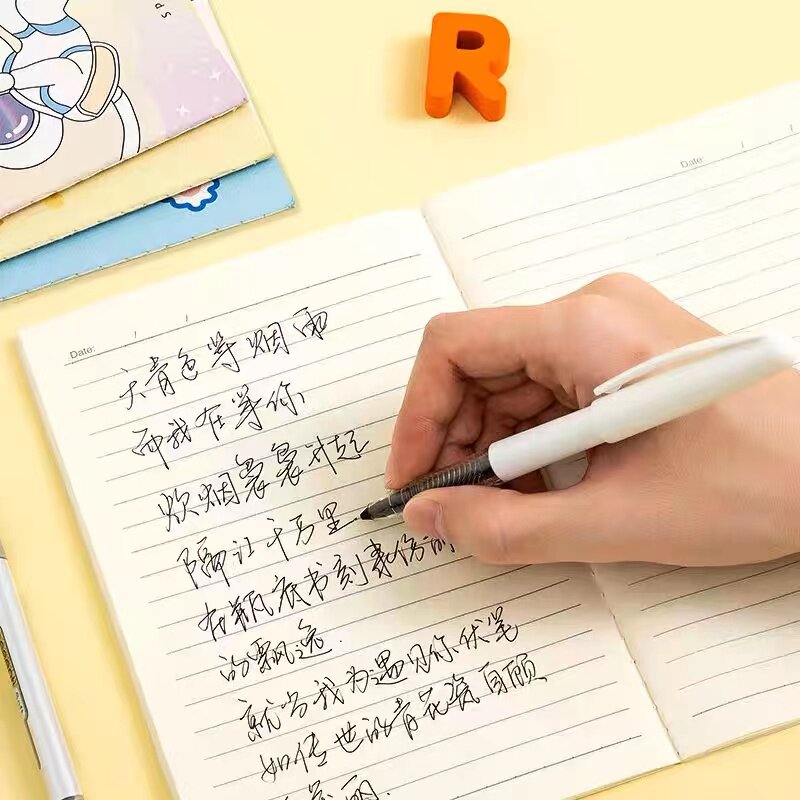 R
Date: / /
Date: / /
天青色等烟雨
而我在等你
炊烟袅袅升起
隔江千万里
在瓶底书刻隶仿
的飘逸.
就当我为遇见你伏笔
如传世的青花瓷自顾
美丽.